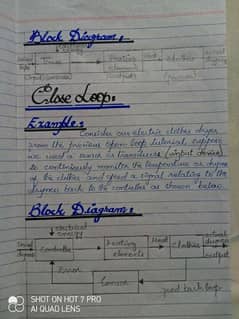 Block Diagram:
Controller
Heating
elements
Heat
Clothes
Close Loop:
Example:
Consider our electric clothes dryer
from the previous open-loop tutorial. suppose
we used a sensor or transducer (input device)
to continuously monitor the temperature or dryness
of the clothes and feed a signal relating to the
dryness back to the controller as shown below.
Block Diagram:
electrical
energy
Controller
Heating
elements
Heat
Clothes
actual dryness
output
Error
Sensor
feed back loop
SHOT ON HOT 7 PRO
AI QUAD LENS